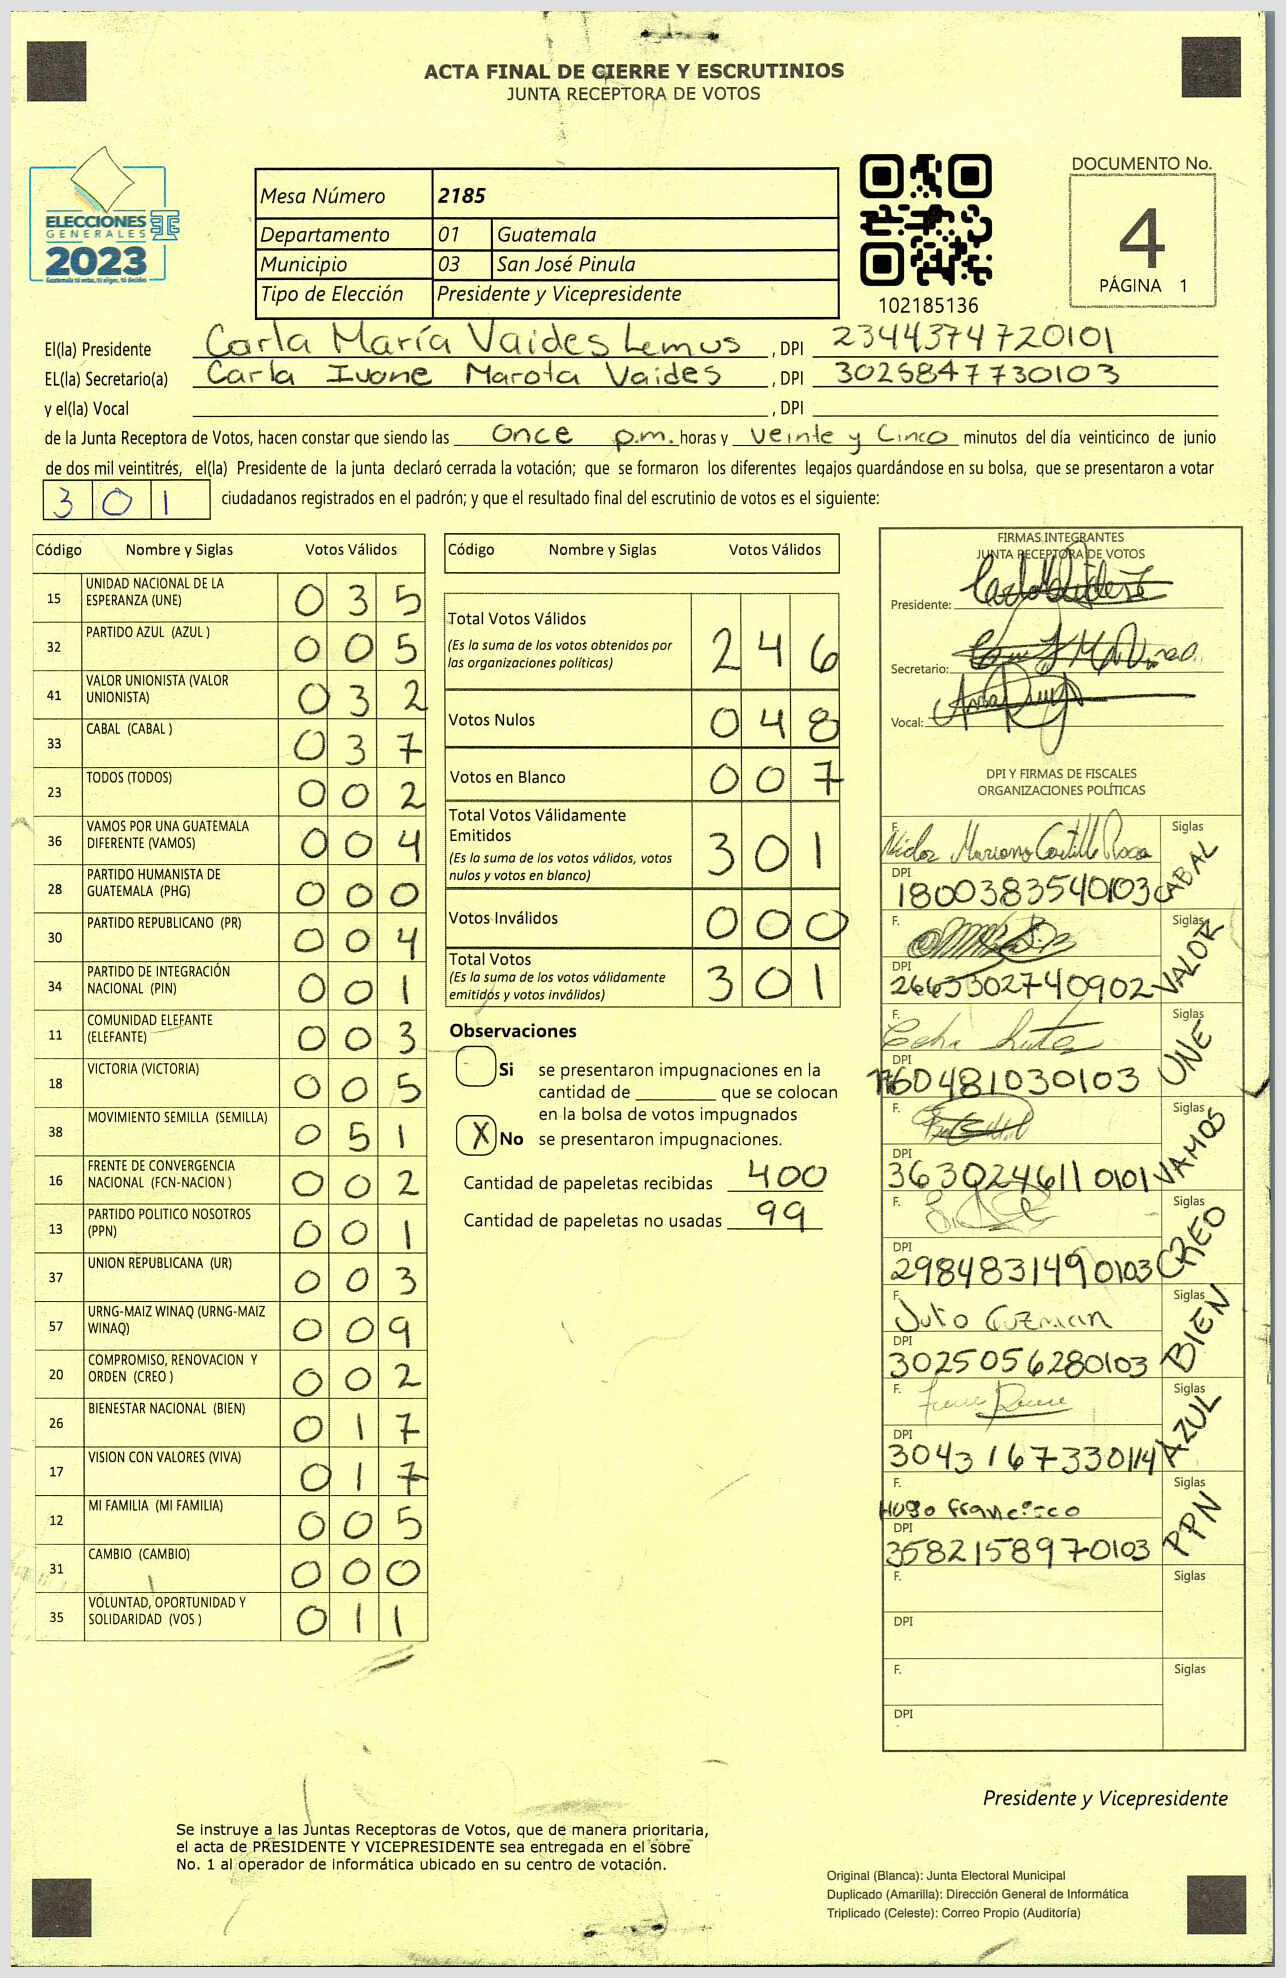 ACTA FINAL DE CIERRE Y ESCRUTINIOS
JUNTA RECEPTORA DE VOTOS
ELECCIONES
GENERALES
2023
Guatemala tú votas, tú eliges, tú decides
Mesa Número 2185
Departamento 01 Guatemala
Municipio 03 San José Pinula
Tipo de Elección Presidente y Vicepresidente
102185136
DOCUMENTO No.
4
PÁGINA 1
El(la) Presidente Carla María Vaides Lemus , DPI 2344374720101
EL(la) Secretario(a) Carla Ivone Marota Vaides , DPI 3025847730103
y el(la) Vocal , DPI
de la Junta Receptora de Votos, hacen constar que siendo las once p.m. horas y veinte y cinco minutos del día veinticinco de junio
de dos mil veintitrés, el(la) Presidente de la junta declaró cerrada la votación; que se formaron los diferentes legajos guardándose en su bolsa, que se presentaron a votar
301 ciudadanos registrados en el padrón; y que el resultado final del escrutinio de votos es el siguiente:
Código Nombre y Siglas Votos Válidos
15 UNIDAD NACIONAL DE LA ESPERANZA (UNE) 035
32 PARTIDO AZUL (AZUL ) 005
41 VALOR UNIONISTA (VALOR UNIONISTA) 032
33 CABAL (CABAL ) 037
23 TODOS (TODOS) 002
36 VAMOS POR UNA GUATEMALA DIFERENTE (VAMOS) 004
28 PARTIDO HUMANISTA DE GUATEMALA (PHG) 000
30 PARTIDO REPUBLICANO (PR) 004
34 PARTIDO DE INTEGRACIÓN NACIONAL (PIN) 001
11 COMUNIDAD ELEFANTE (ELEFANTE) 003
18 VICTORIA (VICTORIA) 005
38 MOVIMIENTO SEMILLA (SEMILLA) 051
16 FRENTE DE CONVERGENCIA NACIONAL (FCN-NACION ) 002
13 PARTIDO POLITICO NOSOTROS (PPN) 001
37 UNION REPUBLICANA (UR) 003
57 URNG-MAIZ WINAQ (URNG-MAIZ WINAQ) 009
20 COMPROMISO, RENOVACION Y ORDEN (CREO ) 002
26 BIENESTAR NACIONAL (BIEN) 017
17 VISION CON VALORES (VIVA) 017
12 MI FAMILIA (MI FAMILIA) 005
31 CAMBIO (CAMBIO) 000
35 VOLUNTAD, OPORTUNIDAD Y SOLIDARIDAD (VOS ) 011
Código Nombre y Siglas Votos Válidos
Total Votos Válidos 246
(Es la suma de los votos obtenidos por
las organizaciones políticas)
Votos Nulos 048
Votos en Blanco 007
Total Votos Válidamente
Emitidos 301
(Es la suma de los votos válidos, votos
nulos y votos en blanco)
Votos Inválidos 000
Total Votos 301
(Es la suma de los votos válidamente
emitidos y votos inválidos)
Observaciones
Si se presentaron impugnaciones en la
cantidad de ________ que se colocan
en la bolsa de votos impugnados
X No se presentaron impugnaciones.
Cantidad de papeletas recibidas 400
Cantidad de papeletas no usadas 99
FIRMAS INTEGRANTES
JUNTA RECEPTORA DE VOTOS
Presidente:
Secretario:
Vocal:
DPI Y FIRMAS DE FISCALES
ORGANIZACIONES POLÍTICAS
F. Mariano Castillo Siglas
DPI 1800383540103 CABAL
F. Siglas
DPI 2663302740902 VALOR
F. Siglas
DPI 1760481030103 UNE
F. Siglas
DPI 3630246110101 VAMOS
F. Siglas
DPI 2984831490103 CREO
F. Guzman Siglas
DPI 3025056280103 BIEN
F. Siglas
DPI 3043167330114 AZUL
F. Hugo Francisco Siglas
DPI 3582158970103 PPN
F. Siglas
DPI
F. Siglas
DPI
Presidente y Vicepresidente
Se instruye a las Juntas Receptoras de Votos, que de manera prioritaria,
el acta de PRESIDENTE Y VICEPRESIDENTE sea entregada en el sobre
No. 1 al operador de informática ubicado en su centro de votación.
Original (Blanca): Junta Electoral Municipal
Duplicado (Amarilla): Dirección General de Informática
Triplicado (Celeste): Correo Propio (Auditoría)